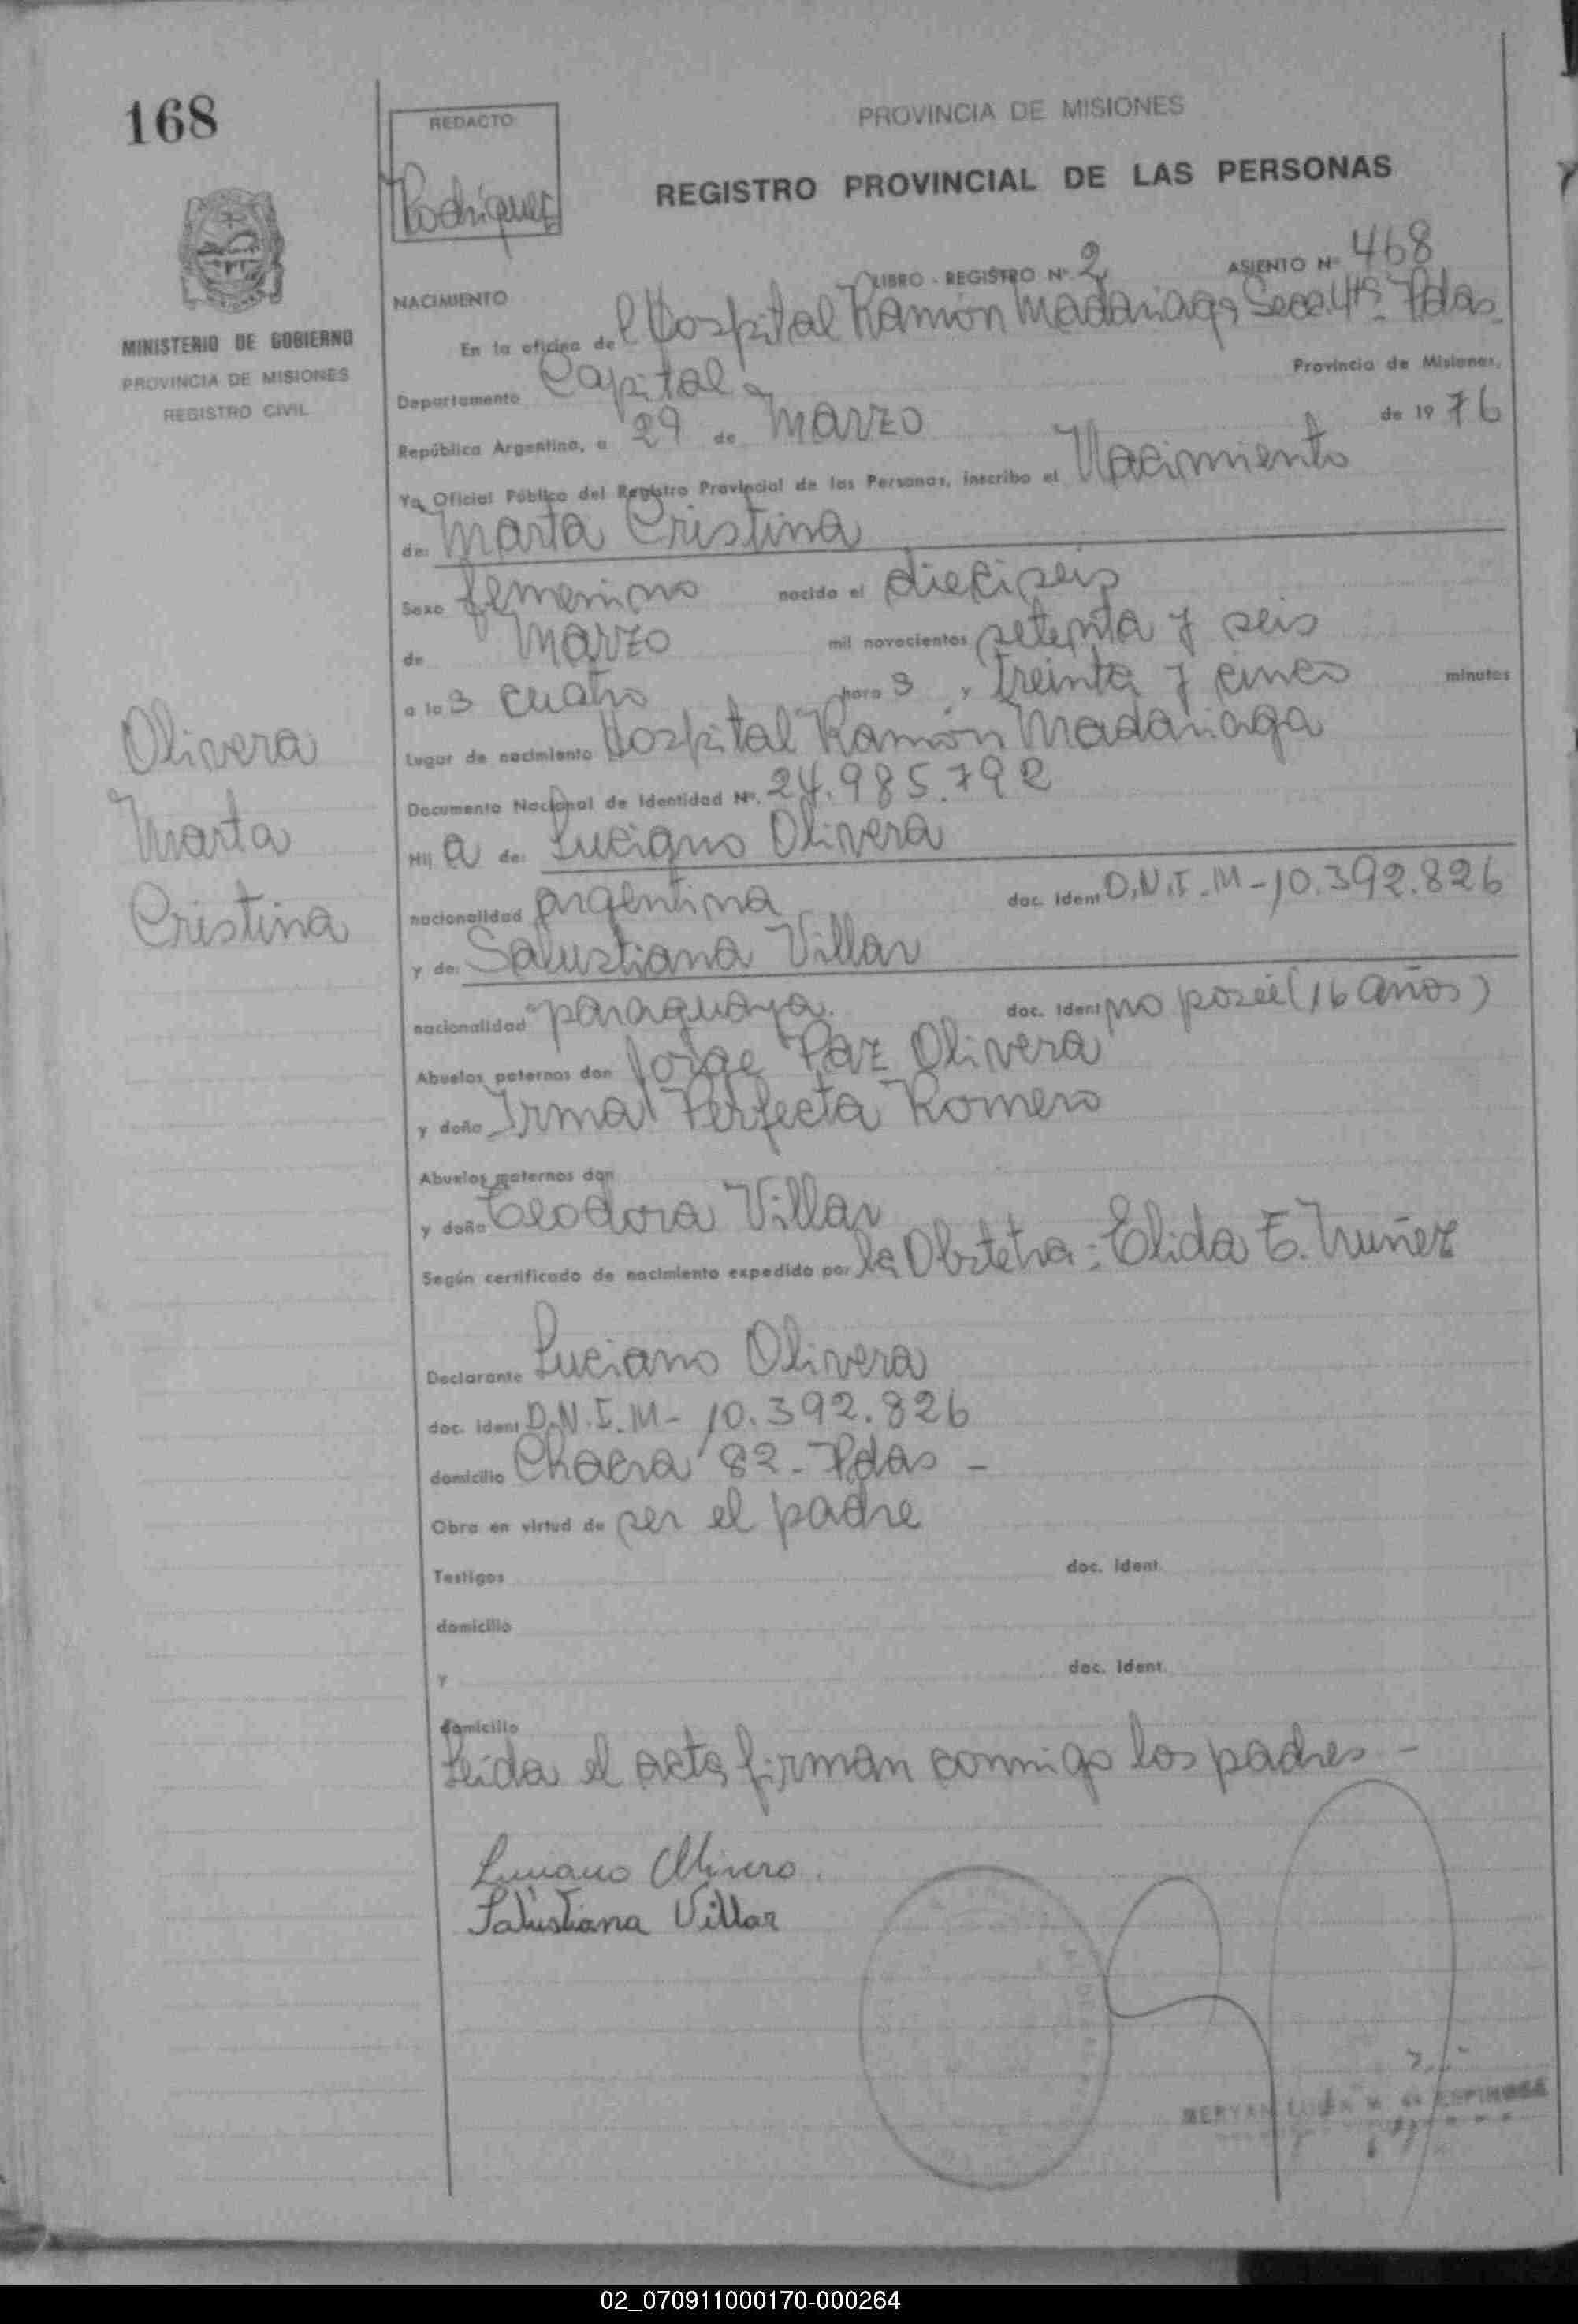 168
REDACTO
Rodriguez
PROVINCIA DE MISIONES
REGISTRO PROVINCIAL DE LAS PERSONAS
MINISTERIO DE GOBIERNO
PROVINCIA DE MISIONES
REGISTRO CIVIL
LIBRO - REGISTRO Nº 2 ASIENTO Nº 468
NACIMIENTO
En la oficina de l Hospital Ramón Madariaga Secc. 4ta Pdas.
Departamento Capital Provincia de Misiones,
República Argentina, a 29 de Marzo de 1976
Yo, Oficial Público del Registro Provincial de las Personas, inscribo el Nacimiento
de: Marta Cristina
Sexo femenino nacido el dieciseis
de Marzo mil novecientos setenta y seis
a las cuatro horas y treinta y cinco minutos
Lugar de nacimiento Hospital Ramón Madariaga
Documento Nacional de Identidad Nº. 24.985.792
Hija de: Luciano Olivera
nacionalidad argentina doc. Ident D.N.I. M-10.392.826
y de: Salustiana Villar
nacionalidad paraguaya. doc. Ident no posee (16 años)
Abuelos paternos don Jorge Paz Olivera
y doña Irma Perfecta Romero
Abuelos maternos don
y doña Teodora Villar
Según certificado de nacimiento expedido por la Obstetra: Elida E. Nuñez
Declarante Luciano Olivera
doc. ident D.N.I. M- 10.392.826
domicilio Chacra 82 - Pdas -
Obra en virtud de ser el padre
Testigos doc. ident.
domicilio
y doc. Ident.
domicilio
Leida el acta, firman conmigo los padres -
Luciano Olivera.
Salustiana Villar
ESPINOSA
Olivera
Marta
Cristina
02_070911000170-000264